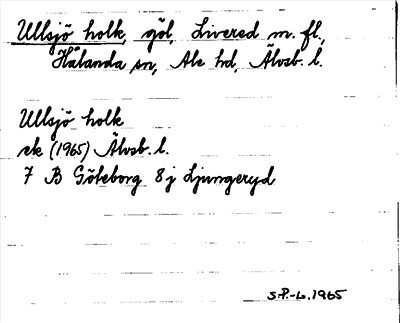 Ullsjö holk, göl, Livered m. fl.,
Hålanda sn, Ale hd, Älvsb. l.
Ullsjö holk
ek (1965) Älvsb. l.
7 B Göteborg 8 j Ljungeryd
S.P.-L. 1965